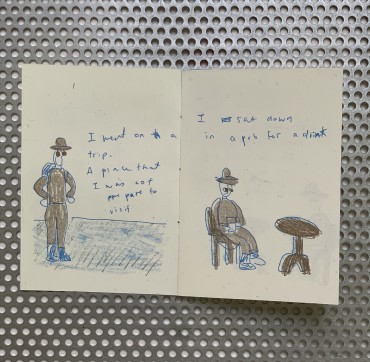 I went on a
trip.
A place that
I was not
part to
visit
I sat down
in a pub for a drink